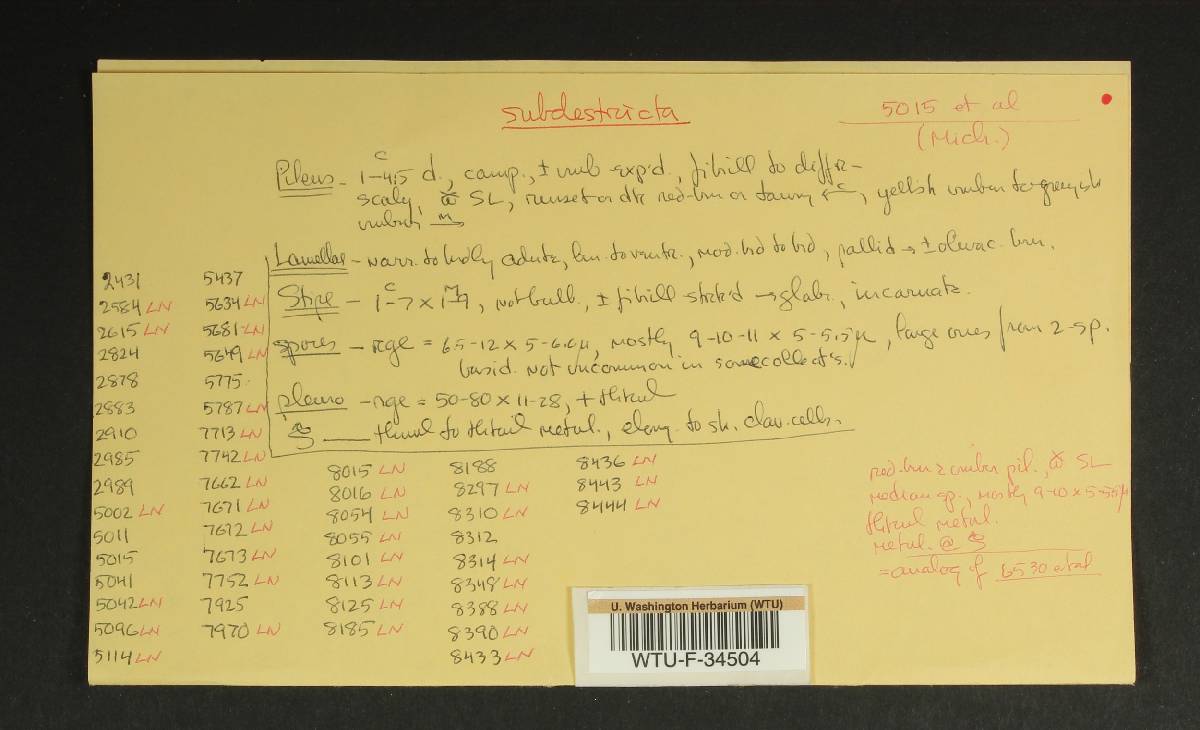 subdestricta
5015 et al
(Mich.)
Pileus - 1-4.5 d., camp., ± umb exp'd., fibrill to diffr-
scaly, SL, russet or dk red-brn or tawny C, yellsh umber to greyish
umber M
Lamellae - narr. to brdly adnate, lin. to ventr., mod. brd to brd, pallid → ± olivac. brn.
Stipe - 1-7 × 1-9, not bulb., ± fibrill strk'd → glabr., incarnate.
spores - rge = 6.5-12 × 5-6. µ, mostly 9-10-11 × 5-5.5µ, large ones from 2-sp.
basid. not uncommon in some collect's.
pleuro - rge = 50-80 × 11-28, + thkwl
thnwl to thkwl metul., elong. to sh. clav. cells.
2431
2584 LN
2615 LN
2824
2878
2883
2910
2985
2989
5002 LN
5011
5015
5041
5042 LN
5096 LN
5114 LN
5437
5634 LN
5681 LN
5649 LN
5775
5787 LN
7713 LN
7742 LN
7662 LN
7671 LN
7672 LN
7673 LN
7752 LN
7925
7970 LN
8015 LN
8016 LN
8054 LN
8055 LN
8101 LN
8113 LN
8125 LN
8185 LN
8188
8297 LN
8310 LN
8312
8314 LN
8348 LN
8388 LN
8390 LN
8433 LN
8436 LN
8443 LN
8444 LN
red-brn umber pil., SL
median sp., mostly 9-10 × 5-5.5µ
thkwl metul.
metul. @
= analog of 6530 et al
U. Washington Herbarium (WTU)
WTU-F-34504